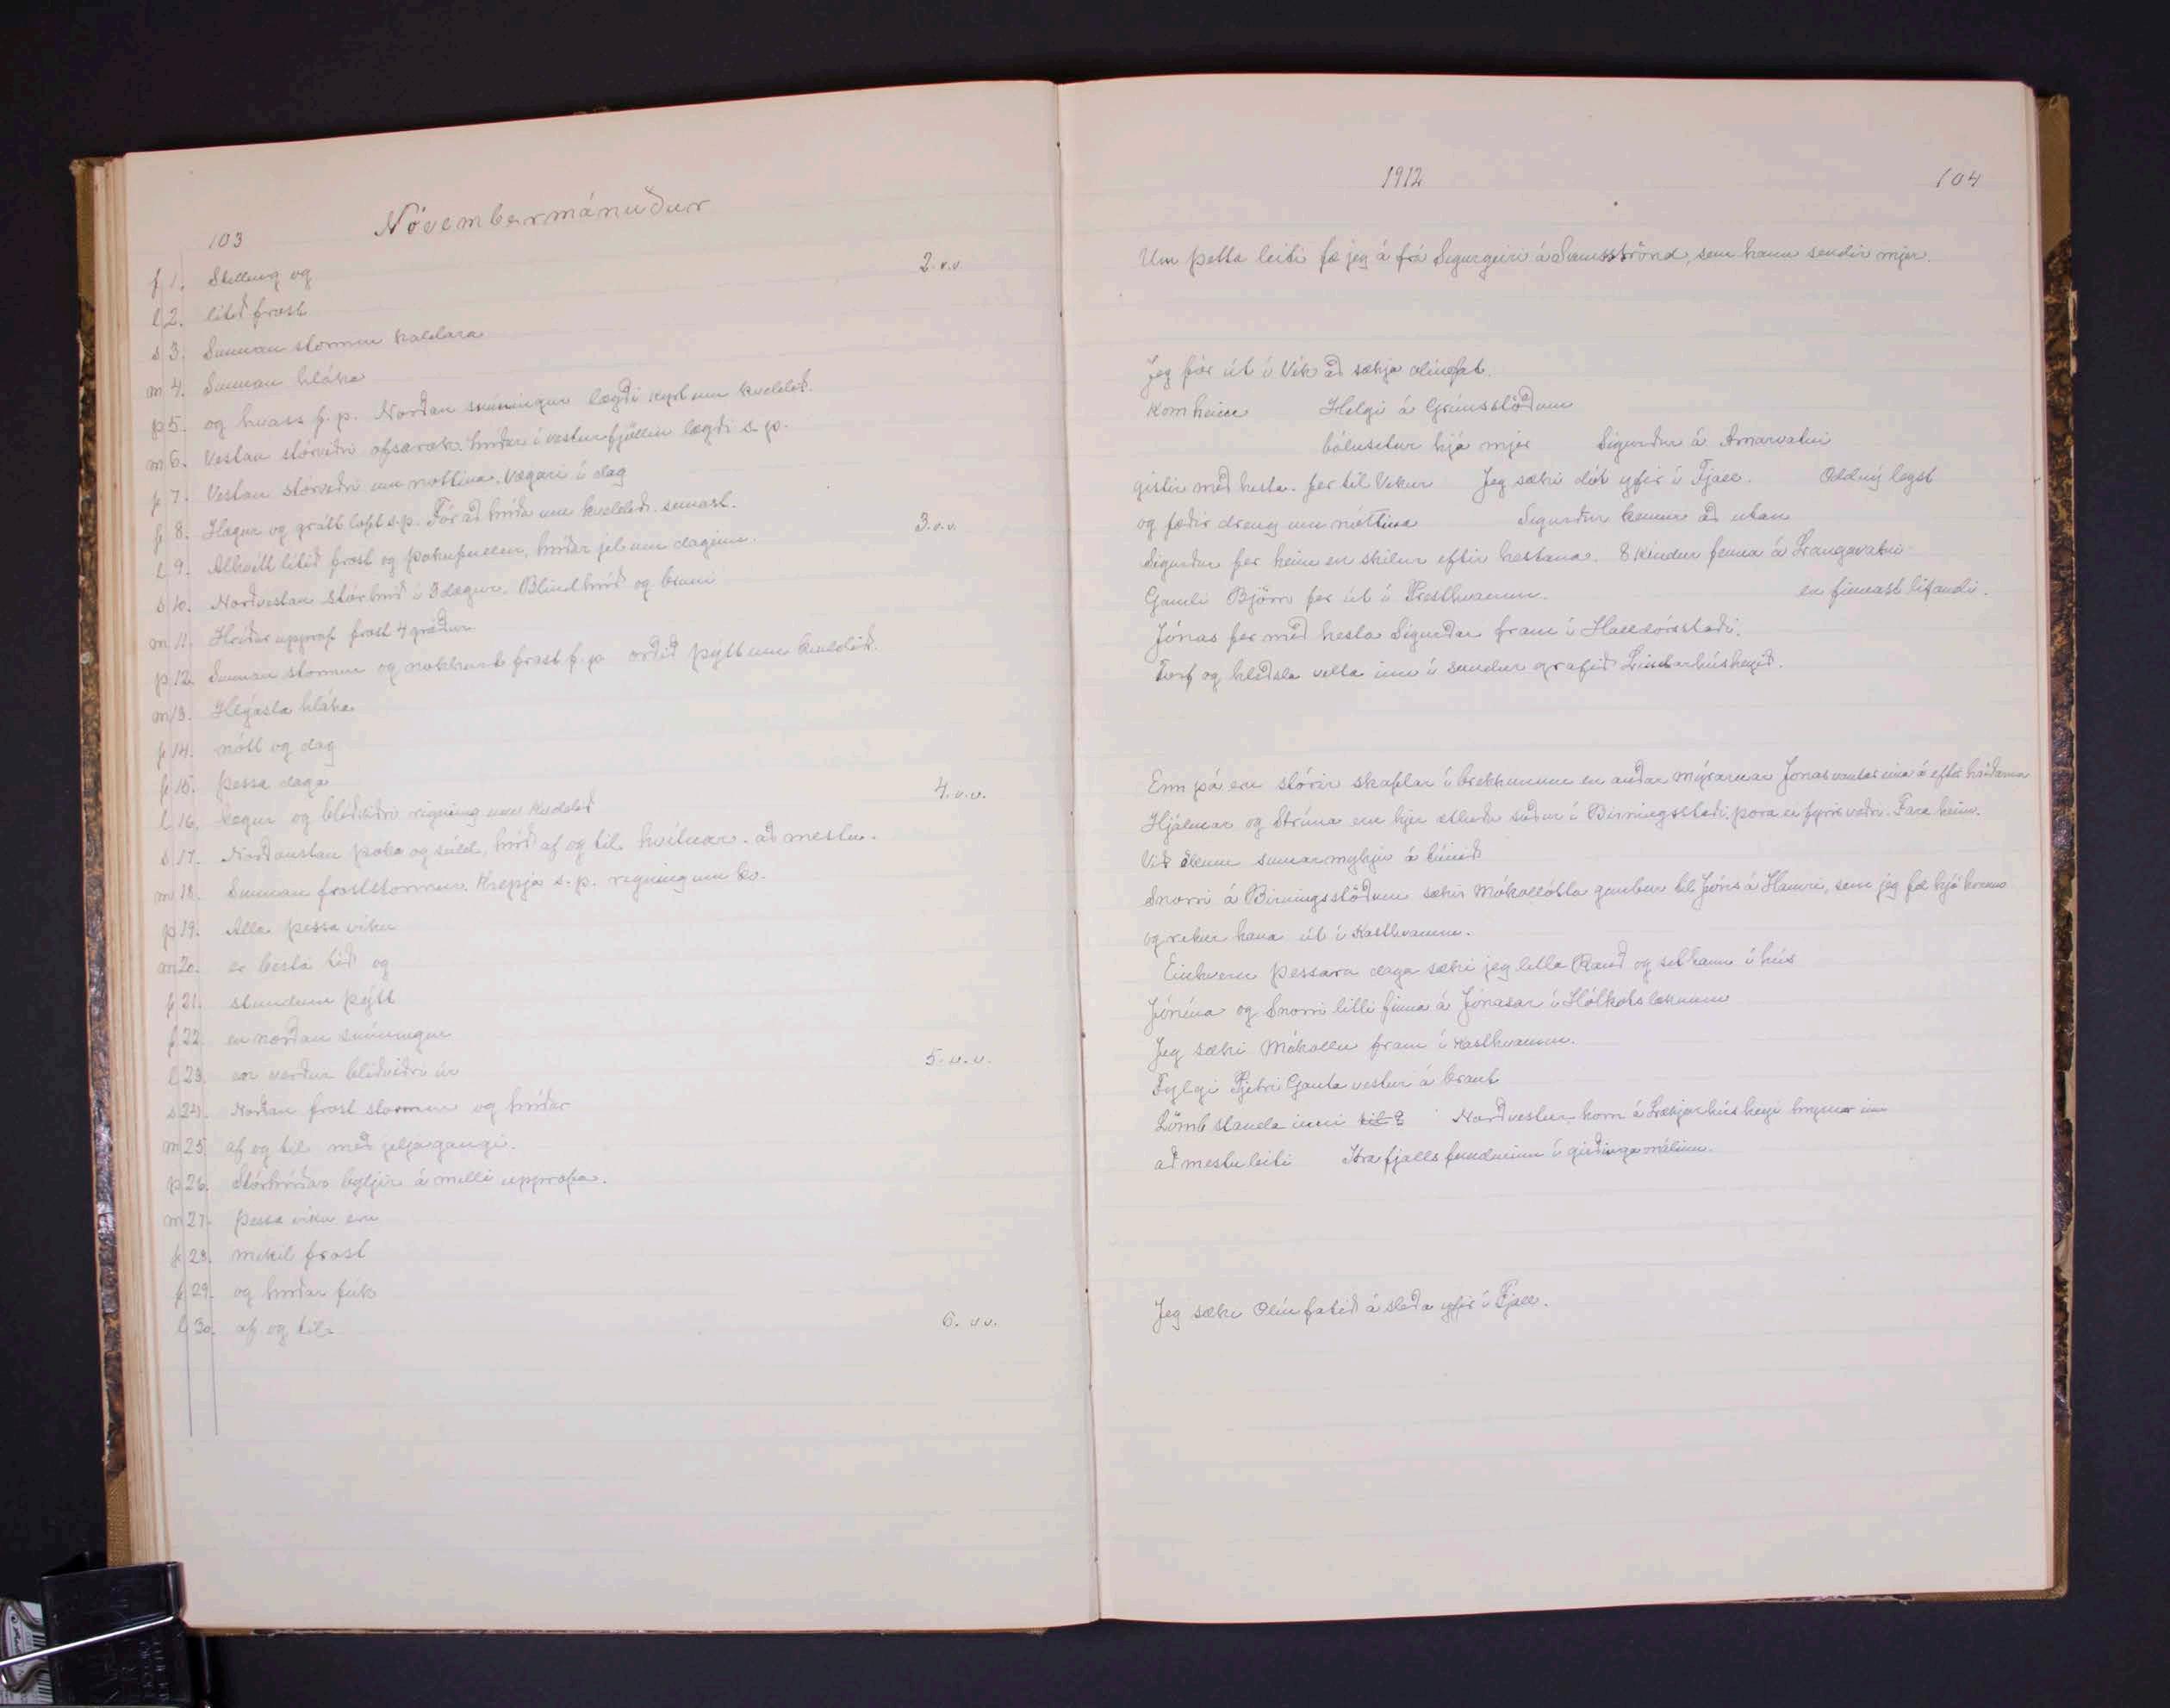 103 Nóvembermánuður
f 1. Stilling og 2. v.v.
l 2. litið frost
s 3. Sunnan stormur kaldara
m 4. Sunnan hláka
þ 5. og hvass f.p. Norðan snúningur lægði kyrt um kveldið.
m 6. Vestan stórveðri ofsarok hríðar í vesturfjöllin lægði s.p.
f 7. Vestan stórveðri um nóttina. Vægari í dag
f 8. Hægur og grátt loft s.p. Fór að hríða um kveldið. sunnast.
l 9. Alhvítt litið frost og þokufullur, hríðar jel um daginn. 3. v.v.
s 10. Norðvestan stórhríð í 3 dægur. Blindhríð og bruni
m 11. Hríðar upprof frost 4 gráður
þ 12. Sunnan stormur og nokkurt frost f.p orðið þýtt um kveldið.
m 13. Hlýasta hláka
f 14. nótt og dag
f 15. þessa daga
l 16. hægur og blíðviðri rigning um kveldið 4. v.v.
s 17. Norðaustan þoka og súld, hríð af og til hvítnar. að mestu.
m 18. Sunnan froststormur. Krepja s.p. rigning um kv.
þ 19. Alla þessa viku
m 20. er besta tíð og
f 21. stundum þýtt
f 22. en norðan snúningur
l 23. en verður blíðviðri úr 5. v.v.
s 24. Norðan frost stormur og hríðar
m 25. af og til með jeljagangi.
þ 26. Stórhríðar byljir á milli upprofa.
m 27. þessa viku eru
f 28. mikil frost
f 29. og hríðar fjúk
l 30. af og til. 6. v.v.
1912 104
Um þetta leiti fæ jeg á frá Sigurgeiri á strönd, sem hann sendir mjer.
Jeg fór út í Vík að sækja olíufat.
kom heim Helgi á Grímsstöðum
bólusetur hjá mjer Sigurður á Arnarvatni
gistir með hesta. fer til Vikur Jeg sæki dót yfir í Fjall. Oddný legst
og fæðir dreng um nóttina Sigurður kemur að utan
Sigurður fer heim en skilur eftir hestana. 8 kindur fenna á Langavatni
Gamli Björn fer út í Presthvamm. en finnast lifandi.
Jónas fer með hesta Sigurðar fram í Halldórsstaði.
Torf og hleðsla velta inn í sundur grafið Lindarhúsheyið.
Enn þá eru stórir skaflar í brekkunum en auðar mýrarnar Jónas vantar eina á eftir hríðarnar
Hjálmar og Strúna eru hjer ætluðu suður í Birningsstaði þora ei fyrir veðri. Fara heim.
Við ökum sunnar mykju á túnið
Snorri á Birningsstöðum sækir Mókollótta gimbur til Jóns á Hamri, sem jeg fæ hjá honum
og rekur hana út í Kasthvamm.
Einhvern þessara daga sæki jeg litla Rauð og set hann í hús
Jónína og Snorri litli finna á Jónasar í Hólkotslæknum
Jeg sæki Mókollu fram í Kasthvamm.
Fylgi Pjetri Gauta vestur á braut
Lömb standa inni Norðvestur horn á Lækjarhús heyi hrynur inn
að mestu leiti fjalls fundurinn í girðingamálinu.
Jeg sæki Olíufatið á sleða yfir í Fjall.